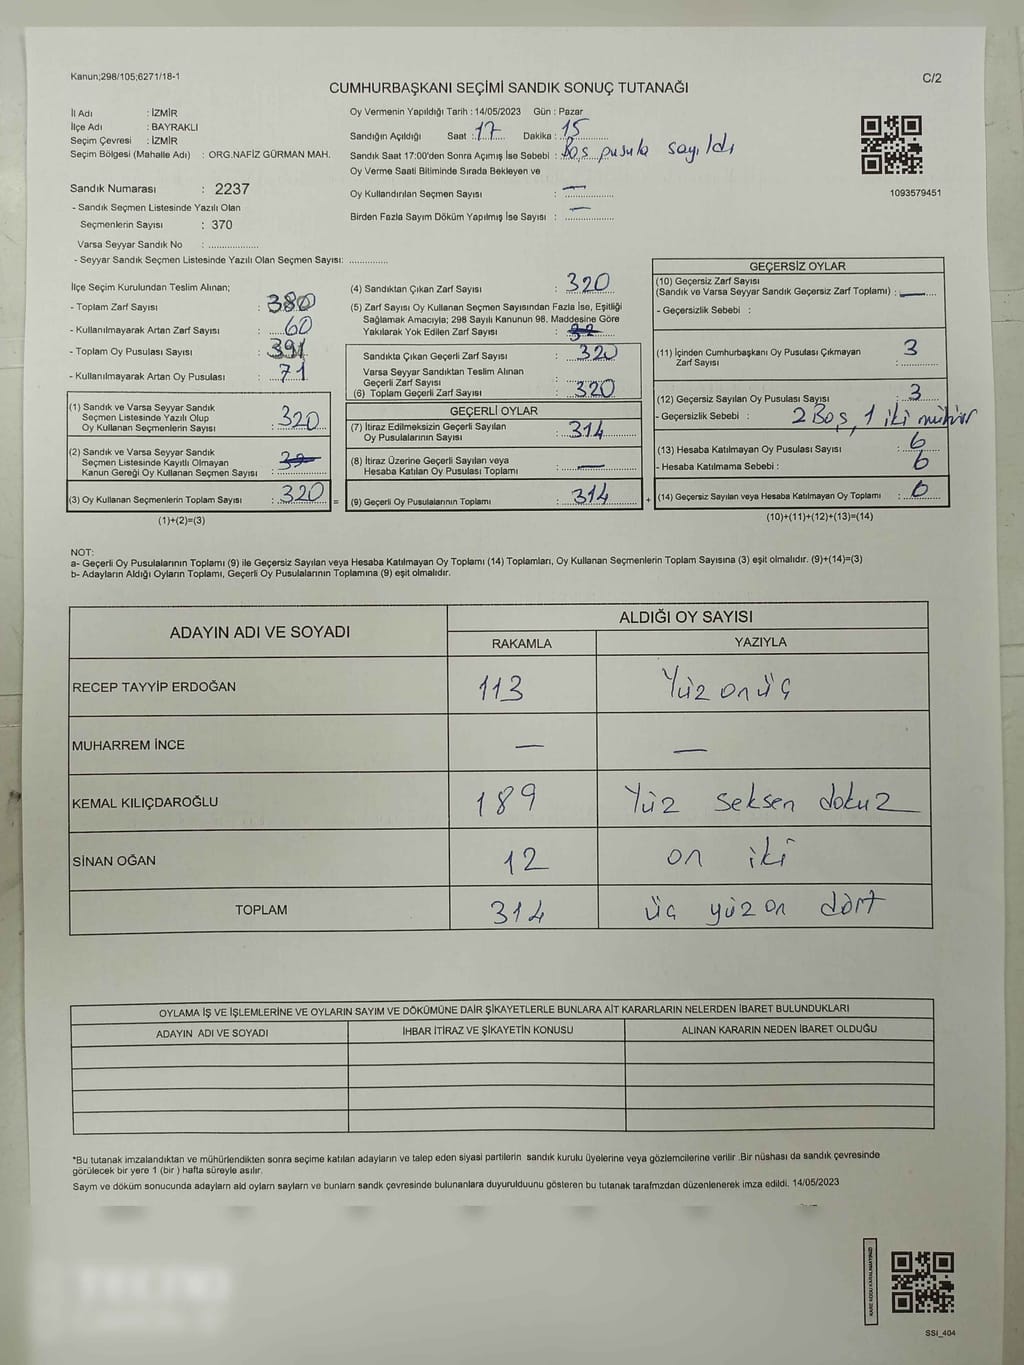 Kanun;298/105;6271/18-1
C/2
CUMHURBAŞKANI SEÇİMİ SANDIK SONUÇ TUTANAĞI
İl Adı : İZMİR
İlçe Adı : BAYRAKLI
Seçim Çevresi : İZMİR
Seçim Bölgesi (Mahalle Adı) : ORG.NAFİZ GÜRMAN MAH.
Sandık Numarası : 2237
- Sandık Seçmen Listesinde Yazılı Olan
Seçmenlerin Sayısı : 370
Varsa Seyyar Sandık No : ..................
- Seyyar Sandık Seçmen Listesinde Yazılı Olan Seçmen Sayısı: ..............
Oy Vermenin Yapıldığı Tarih : 14/05/2023 Gün : Pazar
Sandığın Açıldığı Saat : 17 Dakika : 15
Sandık Saat 17:00'den Sonra Açımış İse Sebebi : Boş pusula sayıldı
Oy Verme Saati Bitiminde Sırada Bekleyen ve
Oy Kullandırılan Seçmen Sayısı : —
Birden Fazla Sayım Döküm Yapılmış İse Sayısı : —
1093579451
İlçe Seçim Kurulundan Teslim Alınan;
- Toplam Zarf Sayısı : 380
- Kullanılmayarak Artan Zarf Sayısı : 60
- Toplam Oy Pusulası Sayısı : 391
- Kullanılmayarak Artan Oy Pusulası : 71
(1) Sandık ve Varsa Seyyar Sandık
Seçmen Listesinde Yazılı Olup
Oy Kullanan Seçmenlerin Sayısı : 320
(2) Sandık ve Varsa Seyyar Sandık
Seçmen Listesinde Kayıtlı Olmayan
Kanun Gereği Oy Kullanan Seçmen Sayısı :
(3) Oy Kullanan Seçmenlerin Toplam Sayısı : 320 =
(1)+(2)=(3)
(4) Sandıktan Çıkan Zarf Sayısı : 320
(5) Zarf Sayısı Oy Kullanan Seçmen Sayısından Fazla İse, Eşitliği
Sağlamak Amacıyla; 298 Sayılı Kanunun 98. Maddesine Göre
Yakılarak Yok Edilen Zarf Sayısı :
Sandıkta Çıkan Geçerli Zarf Sayısı : 320
Varsa Seyyar Sandıktan Teslim Alınan
Geçerli Zarf Sayısı :
(6) Toplam Geçerli Zarf Sayısı : 320
GEÇERLİ OYLAR
(7) İtiraz Edilmeksizin Geçerli Sayılan
Oy Pusulalarının Sayısı : 314
(8) İtiraz Üzerine Geçerli Sayılan veya
Hesaba Katılan Oy Pusulası Toplamı : —
(9) Geçerli Oy Pusulalarının Toplamı : 314 +
GEÇERSİZ OYLAR
(10) Geçersiz Zarf Sayısı
(Sandık ve Varsa Seyyar Sandık Geçersiz Zarf Toplamı) : —
- Geçersizlik Sebebi :
(11) İçinden Cumhurbaşkanı Oy Pusulası Çıkmayan
Zarf Sayısı : 3
(12) Geçersiz Sayılan Oy Pusulası Sayısı : 3
- Geçersizlik Sebebi : 2 Boş, 1 iki mühür
(13) Hesaba Katılmayan Oy Pusulası Sayısı : 6
- Hesaba Katılmama Sebebi : 6
(14) Geçersiz Sayılan veya Hesaba Katılmayan Oy Toplamı : 6
(10)+(11)+(12)+(13)=(14)
NOT:
a- Geçerli Oy Pusulalarının Toplamı (9) ile Geçersiz Sayılan veya Hesaba Katılmayan Oy Toplamı (14) Toplamları, Oy Kullanan Seçmenlerin Toplam Sayısına (3) eşit olmalıdır. (9)+(14)=(3)
b- Adayların Aldığı Oyların Toplamı, Geçerli Oy Pusulalarının Toplamına (9) eşit olmalıdır.
ADAYIN ADI VE SOYADI ALDIĞI OY SAYISI
RAKAMLA YAZIYLA
RECEP TAYYİP ERDOĞAN 113 Yüz on üç
MUHARREM İNCE — —
KEMAL KILIÇDAROĞLU 189 Yüz seksen dokuz
SİNAN OĞAN 12 on iki
TOPLAM 314 üç yüz on dört
OYLAMA İŞ VE İŞLEMLERİNE VE OYLARIN SAYIM VE DÖKÜMÜNE DAİR ŞİKAYETLERLE BUNLARA AİT KARARLARIN NELERDEN İBARET BULUNDUKLARI
ADAYIN ADI VE SOYADI İHBAR İTİRAZ VE ŞİKAYETİN KONUSU ALINAN KARARIN NEDEN İBARET OLDUĞU
*Bu tutanak imzalandıktan ve mühürlendikten sonra seçime katılan adayların ve talep eden siyasi partilerin sandık kurulu üyelerine veya gözlemcilerine verilir .Bir nüshası da sandık çevresinde
görülecek bir yere 1 (bir ) hafta süreyle asılır.
Saym ve döküm sonucunda adaylarn ald oylarn saylarn ve bunlarn sandk çevresinde bulunanlara duyurulduunu gösteren bu tutanak tarafmzdan düzenlenerek imza edildi. 14/05/2023
SSI_404